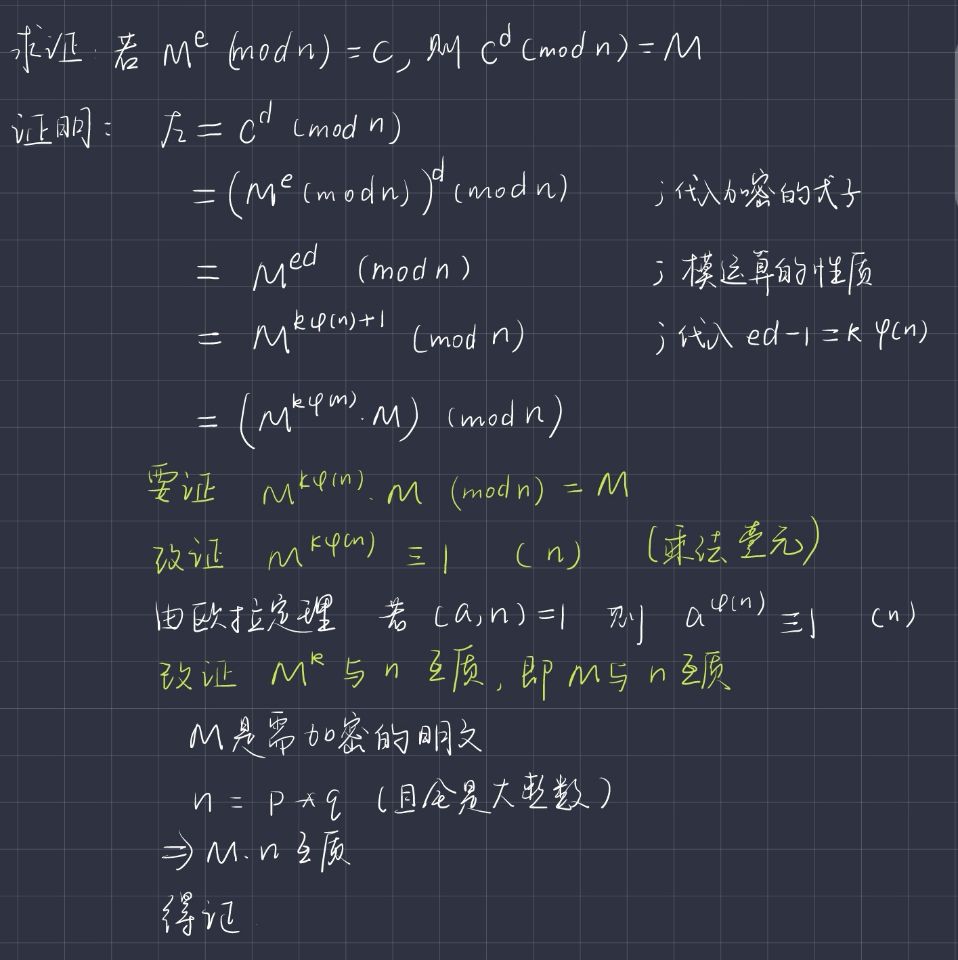 求证:若 M^e (mod n) = C, 则 C^d (mod n) = M
证明: 左 = C^d (mod n)
= (M^e (mod n))^d (mod n) ;代入加密的式子
= M^ed (mod n) ;模运算的性质
= M^kφ(n)+1 (mod n) ;代入 ed-1=kφ(n)
= (M^kφ(n)·M) (mod n)
要证 M^kφ(n)·M (mod n) = M
改证 M^kφ(n) ≡ 1 (n) (乘法幺元)
由欧拉定理 若 (a,n)=1 则 a^φ(n) ≡ 1 (n)
改证 M^k 与 n 互质, 即 M与 n 互质
M是需加密的明文
n = p*q (且是大整数)
⇒ M.n 互质
得证